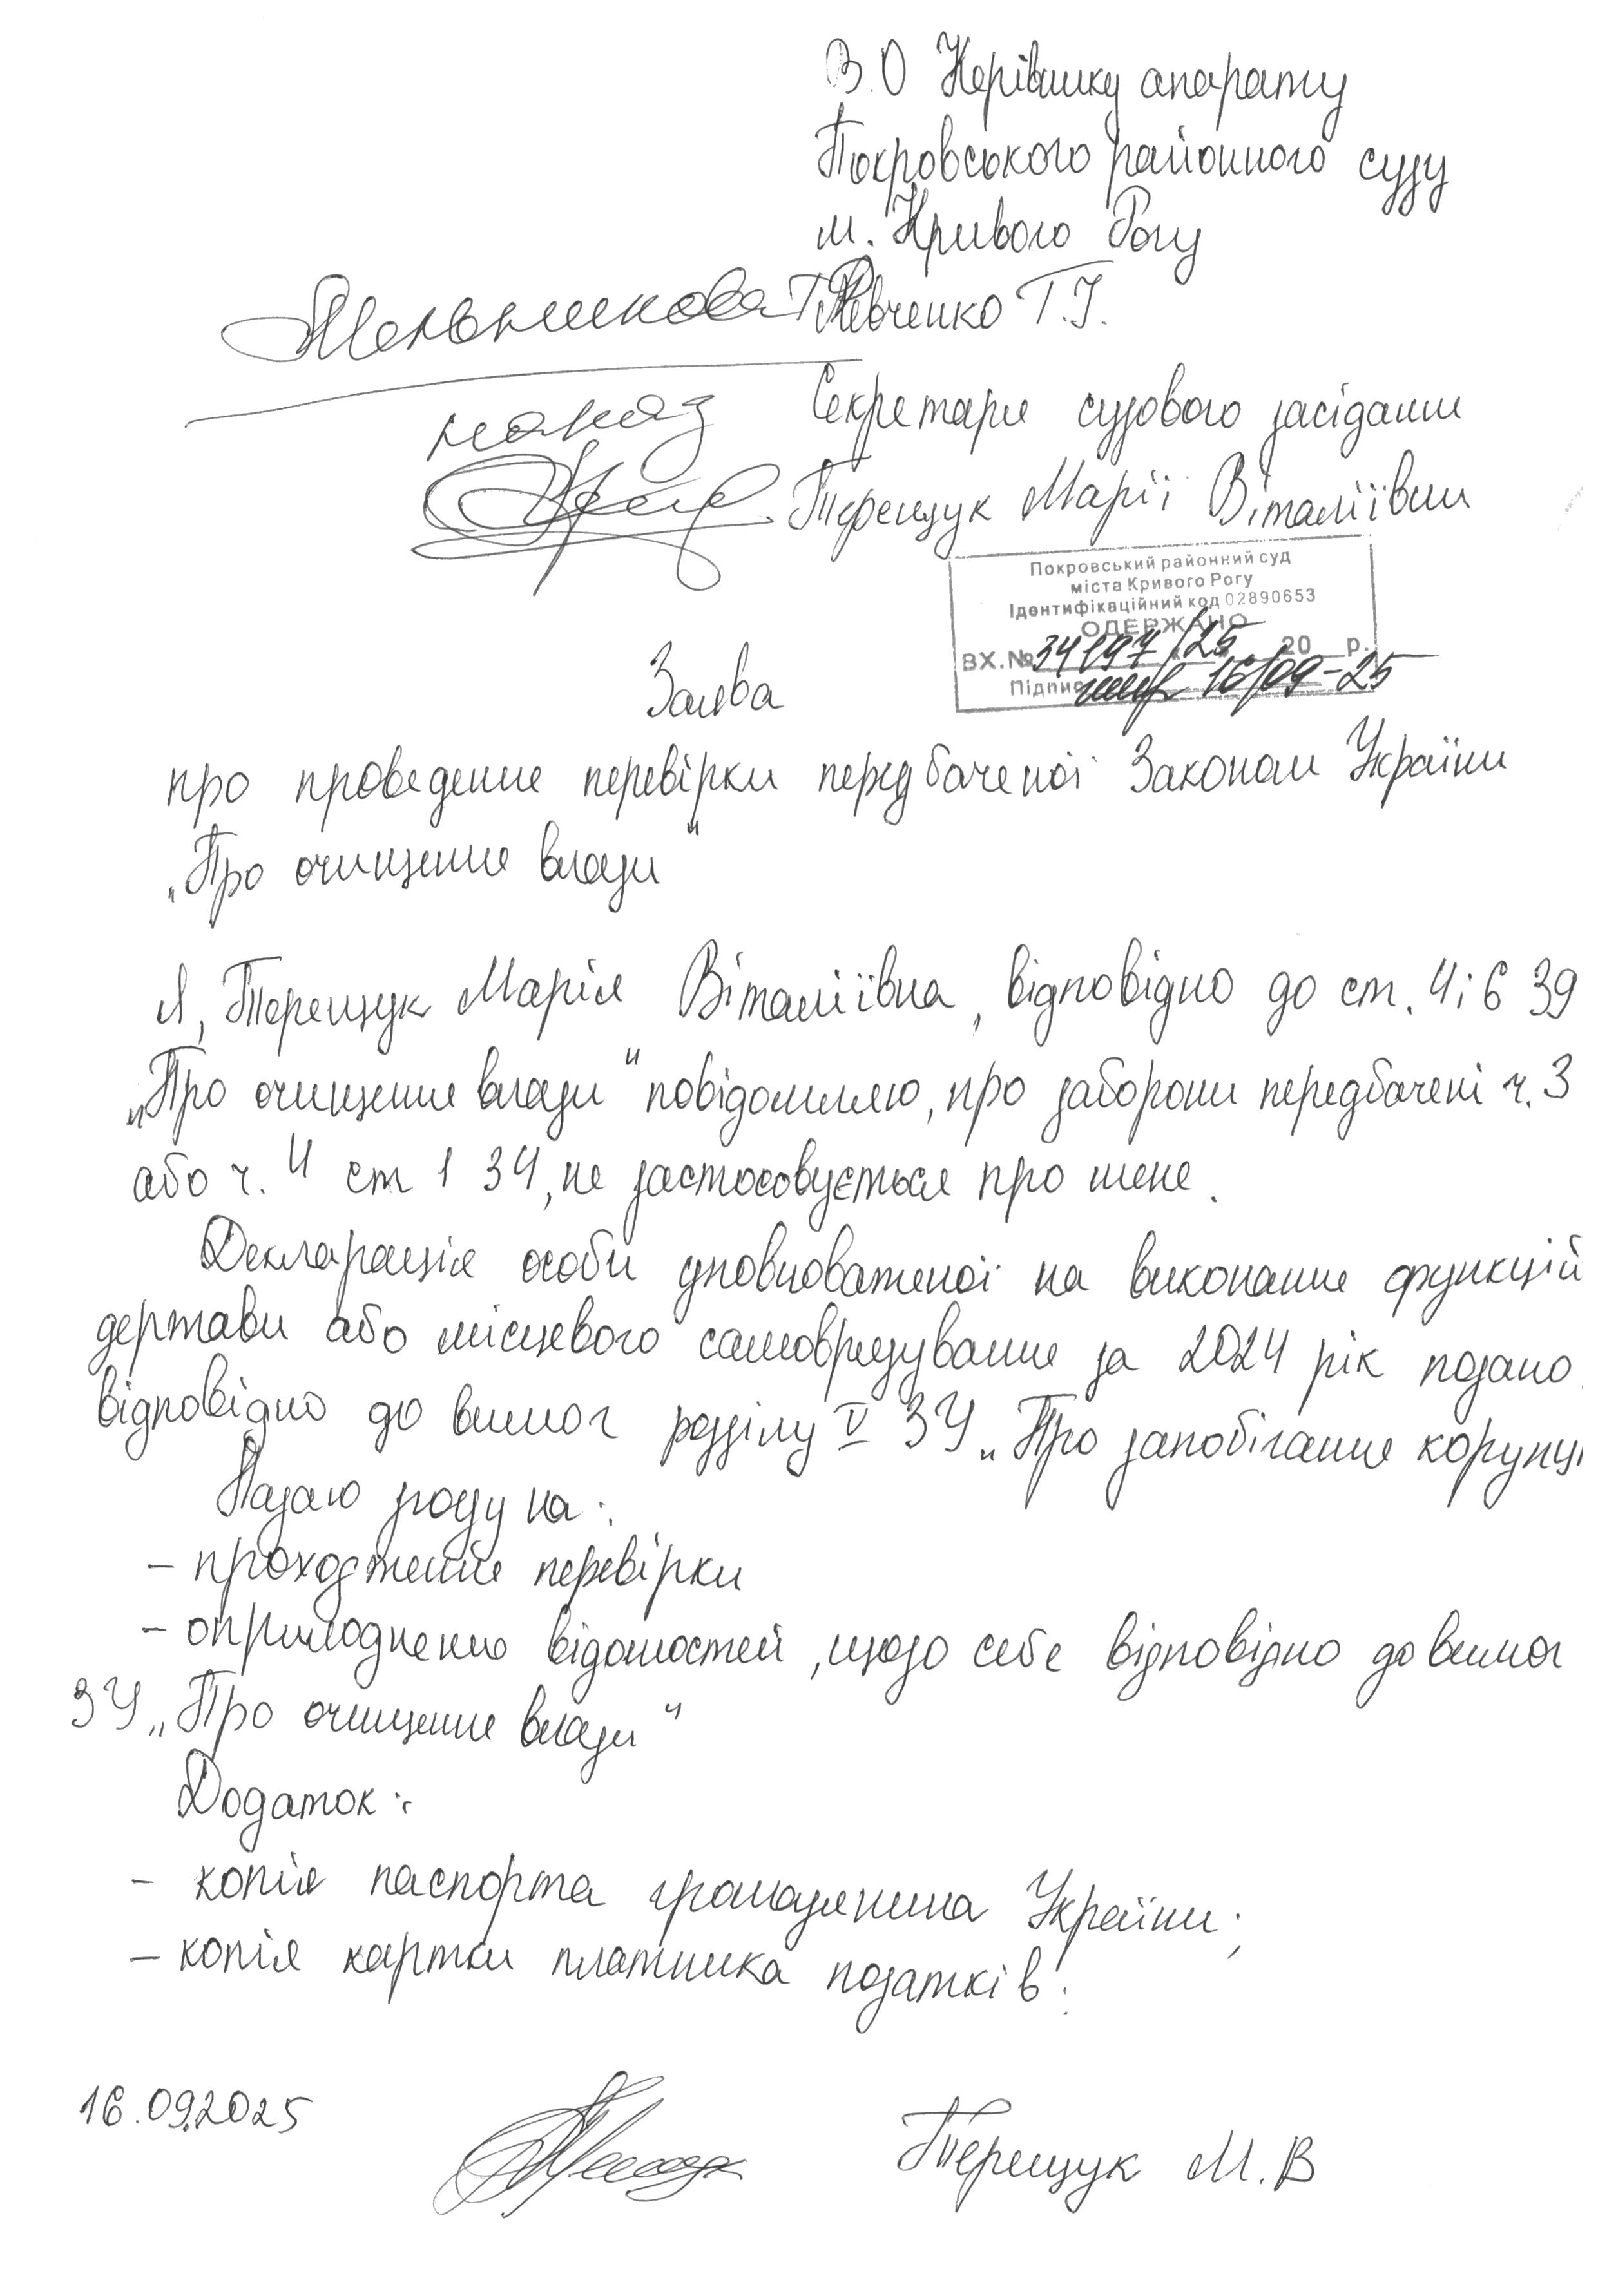 В.О Керівнику апарату
Покровського районного суду
м. Кривого Рогу
Мельникова Т
Левченко Т.І.
наказ
Секретаря судового засідання
Терещук Марії Віталіївни
Покровський районний суд
міста Кривого Рогу
Ідентифікаційний код 02890653
ОДЕРЖАНО
ВХ.№ 34197/25 20 р.
Підпис 16/09-25
Заява
про проведення перевірки передбаченої Законом України
„Про очищення влади"
Я, Терещук Марія Віталіївна, відповідно до ст. 4 і 6 ЗУ
„Про очищення влади" повідомляю, про заборони передбачені ч. 3
або ч. 4 ст 1 ЗУ, не застосовується про мене.
Декларація особи уповноваженої на виконання функцій
держави або місцевого самоврядування за 2024 рік подано
відповідно до вимог розділу V ЗУ „Про запобігання корупці
Надаю згоду на:
- проходження перевірки
- оприлюднення відомостей, щодо себе відповідно до вимог
ЗУ „Про очищення влади"
Додаток:
- копія паспорта громадянина України;
- копія картки платника податків.
16.09.2025
Терещук М.В